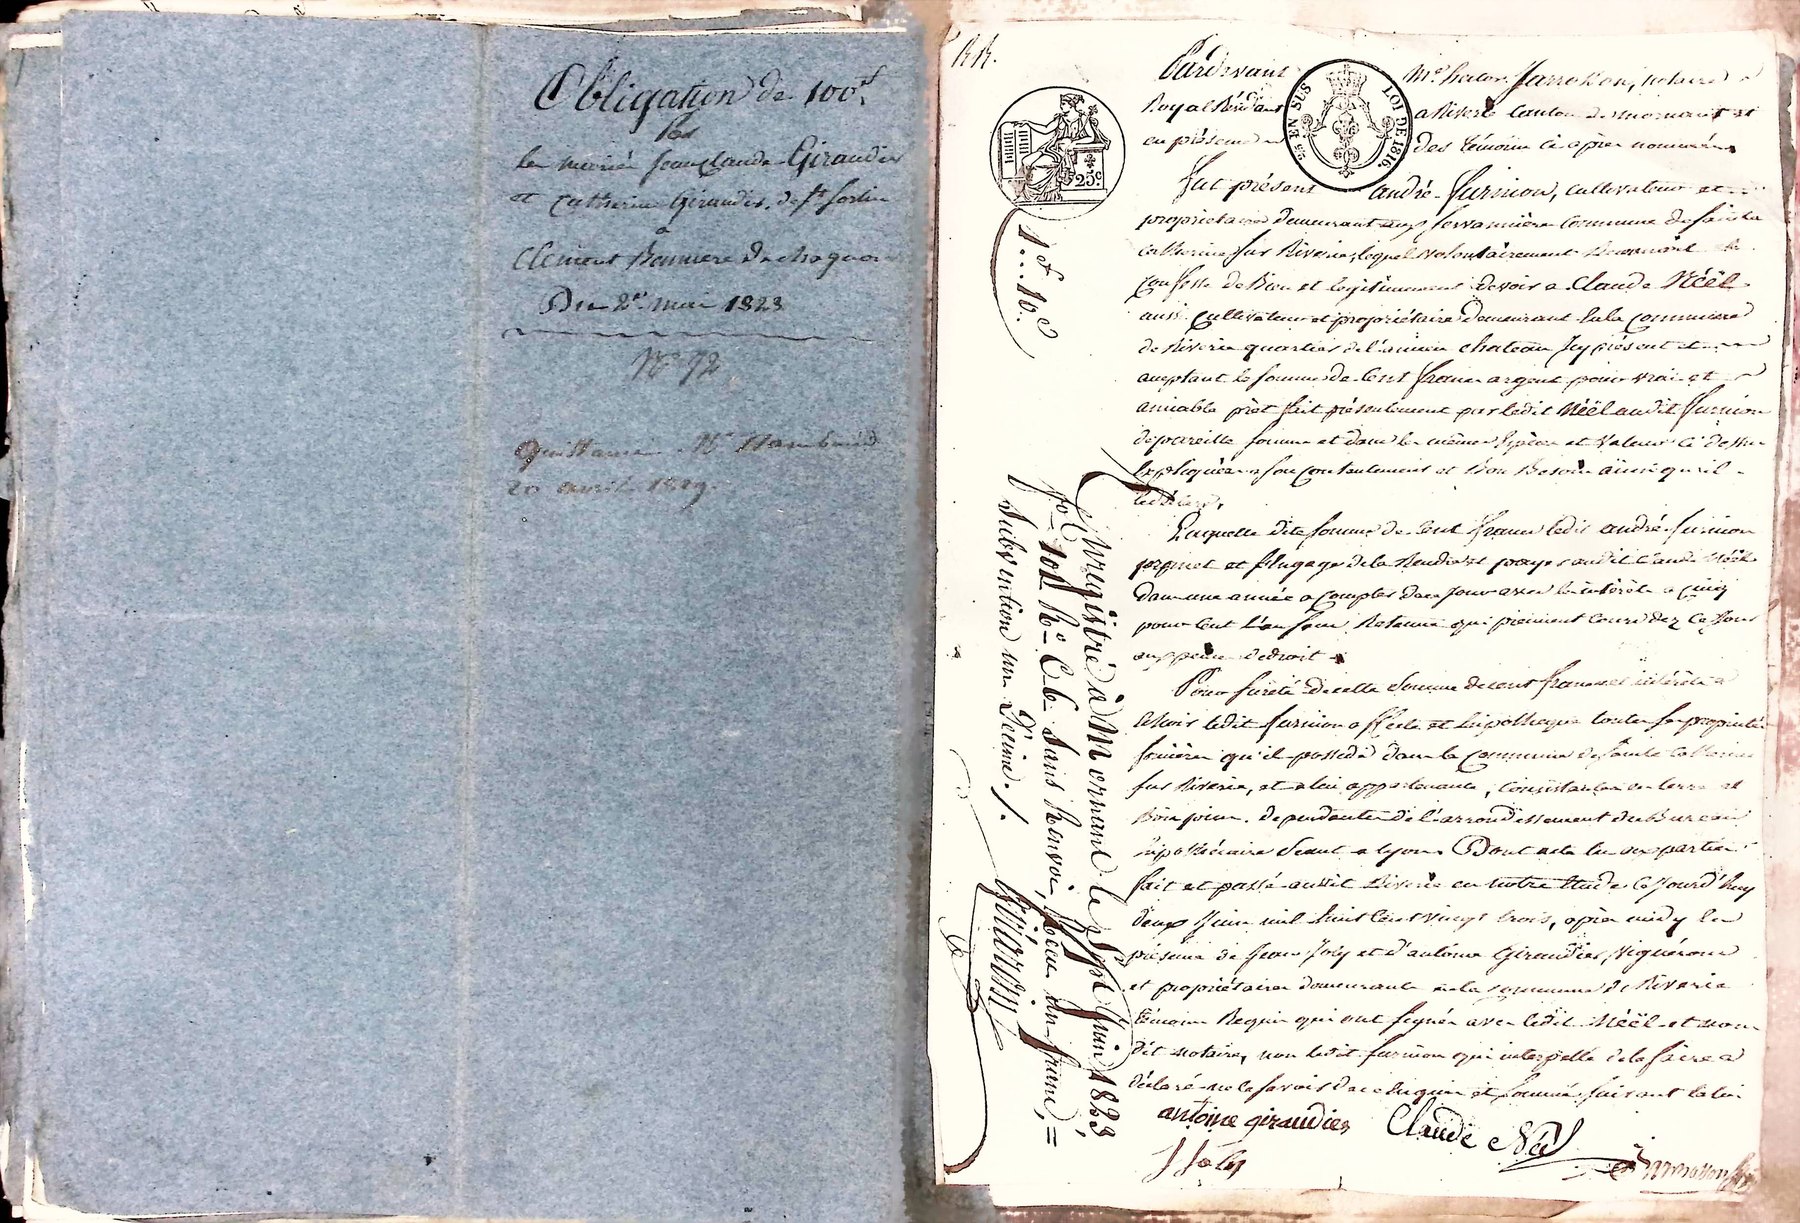 Obligation de 100f.
Par
les mariés Jean Claude Giraudier
et Catherine Giraudier, de St Sorlin
a
Clément Bonniere de chagnon
Du 2e. mai 1823
No 92
Quittance Me
20 avril 1829.
RR.
Pardevant Me hector Jarrosson, notaire
Royal Résidant a Riverie Canton de mornant et
en présence des témoins ci après nommés
25 EN SUS LOI DE 1816.
25c
1f..10c
Fut présent andré furnion, cultivateur et
propriétaire demeurant aux commune de sainte
catherine sur Riverie, lequel volontairement Reconnait et
Confesse de Bien et légitimement devoir a Claude Néël
aussi Cultivateur et propriétaire demeurant en la commune
de Riverie quartier de l'ancien chateau Icy présent et
acceptant la somme de Cent francs argent pour vrai et
amiable prêt fait présentement par ledit Néël audit furnion
de pareille somme et dans les mêmes espèces et valeur ci dessus
Expliquées a son contentement et Bon Besoin ainsi qu'il
le déclare.
Laquelle dite somme de Cent francs ledit andré furnion
promet et s'Engage de la Rendre et payer audit Claude Néël
dans une année a compter de ce jour avec les intérêts a Cinq
pour Cent l'an sans Retenue qui prennent cours dez ce jour
aux peines de droit
Pour sureté de cette somme de cent francs et intérêts a
Echoir ledit furnion affecte et hipothèque toutes les propriétés
foncières qu'il possède dans la commune de sainte Catherine
sur Riverie, et a lui appartenantes, Consistantes en terres et
Bois joints. dependantes de l'arrondissement du Bureau
hipothécaire Séant a lyon. Dont acte lu aux parties
fait et passé audit Riverie en notre Etude Ce Jourd'huy
deux Juin mil huit Cent vingt trois, après midy En
présence de Jean Joly et d'antoine Giraudier, vignerons
et propriétaires demeurants en la commune de Riverie
témoins Requis qui ont signés avec ledit Néël et nous
dit notaire, non ledit furnion qui interpellé de le faire a
déclaré ne le savoir de ce Enquis et sommé suivant la loi
antoine giraudier Claude Néel
J Joly
Enregistré à Mornant le sept Juin 1823,
fo 101 Ro C 6 sans Renvoi, Reçu un franc,
Subvention un Décime./.